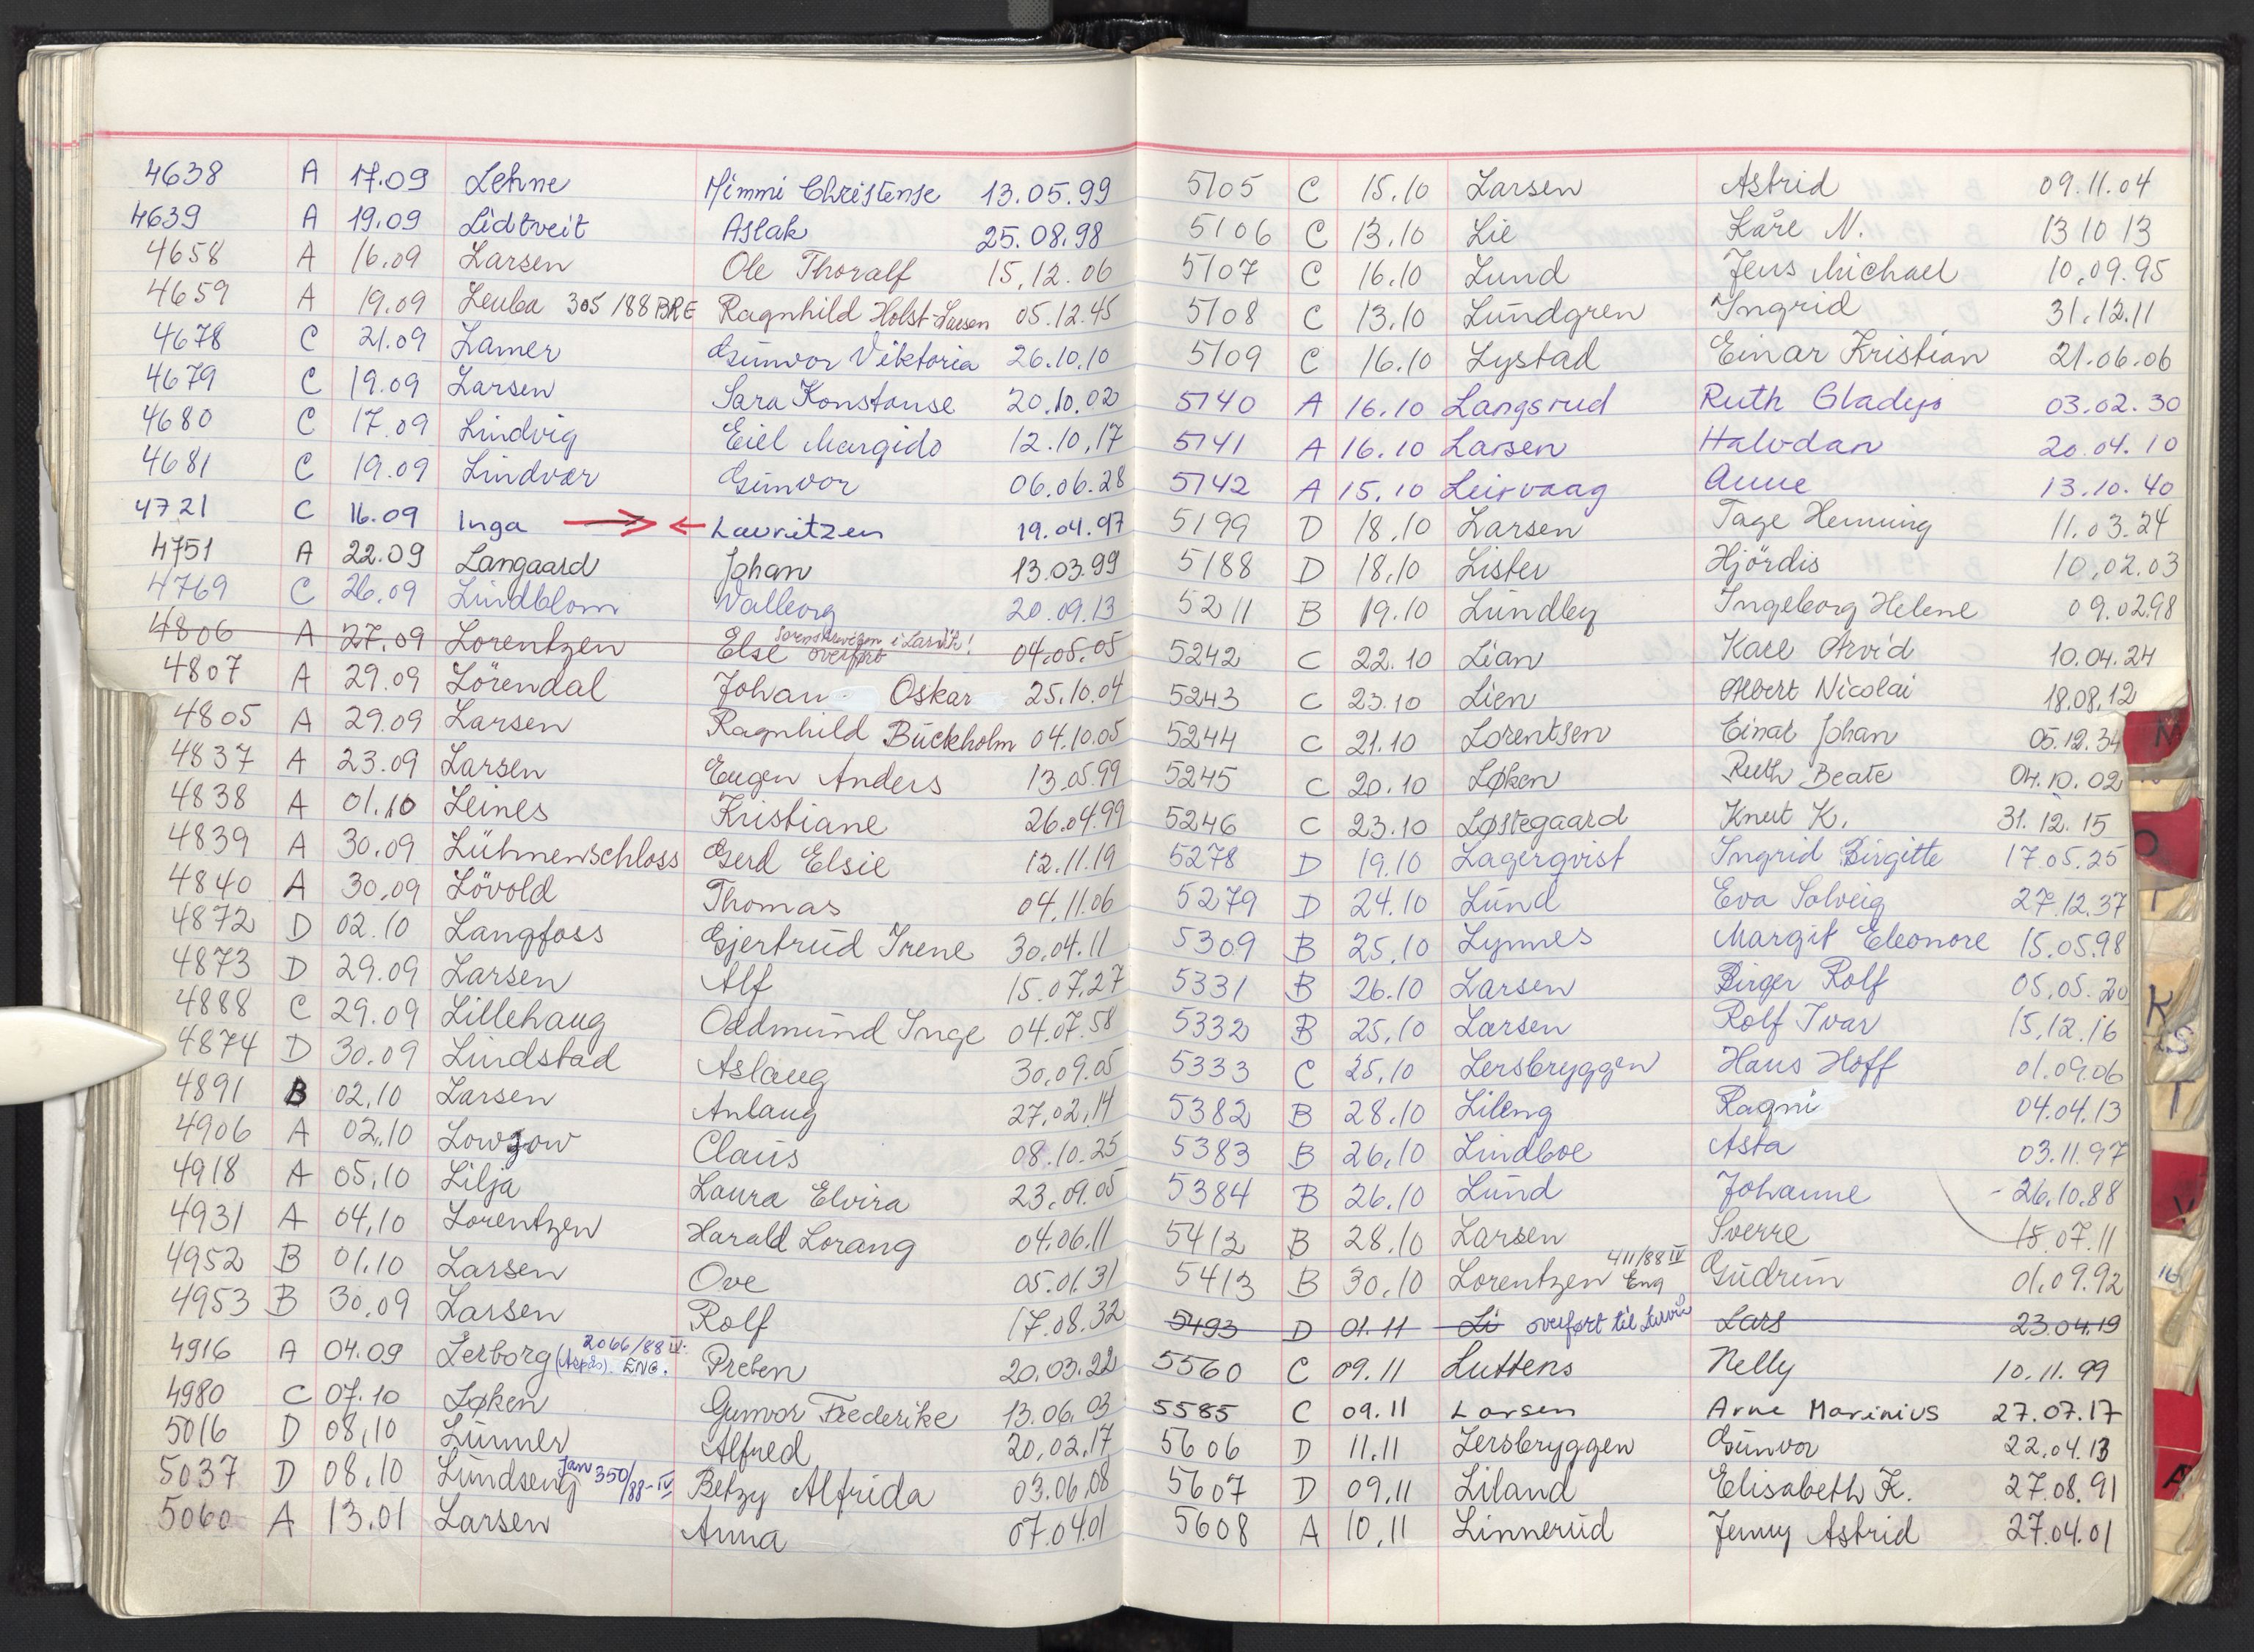 4638 A 17.09 Lehne Mimmi Christense 13.05.99
4639 A 19.09 Lidtveit Aslak 25.08.98
4658 A 16.09 Larsen Ole Thoralf 15.12.06
4659 A 19.09 Leuba 305/88 BRE Ragnhild Holst-Larsen 05.12.45
4678 C 21.09 Lamer Gunvor Viktoria 26.10.10
4679 C 19.09 Larsen Sara Konstanse 20.10.02
4680 C 17.09 Lindvig Eiel Margido 12.10.17
4681 C 19.09 Lindvær Gunvor 06.06.28
4721 C 16.09 Inga → ← Lauritzen 19.04.97
4751 A 22.09 Langaard Johan 13.03.99
4769 C 26.09 Lindblom Valborg 20.09.13
4806 A 27.09 Lorentzen Else overført i Larvik! 04.05.05
4807 A 29.09 Lörendal Johan Oskar 25.10.04
4805 A 29.09 Larsen Ragnhild Buckholm 04.10.05
4837 A 23.09 Larsen Eugen Anders 13.05.99
4838 A 01.10 Leines Kristiane 26.04.99
4839 A 30.09 Lühmenschloss Gerd Elsie 12.11.19
4840 A 30.09 Lövold Thomas 04.11.06
4872 D 02.10 Langfoss Gjertrud Irene 30.04.11
4873 D 29.09 Larsen Alf 15.07.27
4888 C 29.09 Lillehaug Oddmund Inge 04.07.58
4874 D 30.09 Lindstad Aslaug 30.09.05
4891 B 02.10 Larsen Anlaug 27.02.14
4906 A 02.10 Lowzow Claus 08.10.25
4918 A 05.10 Lilja Laura Elvira 23.09.05
4931 A 04.10 Lorentzen Harald Lorang 04.06.11
4952 B 01.10 Larsen Ove 05.01.31
4953 B 30.09 Larsen Rolf 17.08.32
4916 A 04.09 Lerborg 2066/88 IV. ENG. Preben 20.03.22
4980 C 07.10 Løken Gunvor Frederike 13.06.03
5016 D 08.10 Lunner Alfred 20.02.17
5037 D 08.10 Lundseng Jan 350/88-IV Betzy Alfrida 03.06.08
5060 A 13.01 Larsen Anna 07.04.01
5105 C 15.10 Larsen Astrid 09.11.04
5106 C 13.10 Lie Kåre N. 13 10 13
5107 C 16.10 Lund Jens Michael 10.09.95
5108 C 13.10 Lundgren Ingrid 31.12.11
5109 C 16.10 Lystad Einar Kristian 21.06.06
5140 A 16.10 Langsrud Ruth Gladys 03.02.30
5141 A 16.10 Larsen Halvdan 20.04.10
5142 A 15.10 Leirvaag Anne 13.10.40
5199 D 18.10 Larsen Tage Henning 11.03.24
5188 D 18.10 Lister Hjördis 10.02.03
5211 B 19.10 Lundby Ingeborg Helene 09.02.98
5242 C 22.10 Lian Kare Arvid 10.04.24
5243 C 23.10 Lien Albert Nicolai 18.08.12
5244 C 21.10 Lorentsen Einar Johan 05.12.34
5245 C 20.10 Løken Ruth Beate 04.10.02
5246 C 23.10 Løstegaard Knut K. 31.12.15
5278 D 19.10 Lagerqvist Ingrid Birgitte 17.05.25
5279 D 24.10 Lund Eva Solveig 27.12.37
5309 B 25.10 Lynnes Margit Eleonore 15.05.98
5331 B 26.10 Larsen Birger Rolf 05.05.20
5332 B 25.10 Larsen Rolf Ivar 15.12.16
5333 C 25.10 Lersbryggen Hans Hoff 01.09.06
5382 B 28.10 Lileng Ragni 04.04.13
5383 B 26.10 Lindboe Asta 03.11.97
5384 B 26.10 Lund Johanne -26.10.88
5412 B 28.10 Larsen Sverre 15.07.11
5413 B 30.10 Lorentzen 411/88 IV Eng Gudrun 01.09.92
5493 D 01.11 Li overført til Larvik Lars 23.04.19
5560 C 09.11 Luttens Nelly 10.11.99
5585 C 09.11 Larsen Arne Marinius 27.07.17
5606 D 11.11 Lersbryggen Gunvor 22.04.13
5607 D 09.11 Liland Elisabeth K. 27.08.91
5608 A 10.11 Linnerud Jenny Astrid 27.04.01
M
O
K
T
V
A